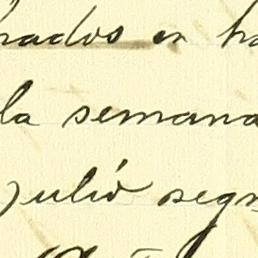 rados en ha
la semana
julio segn